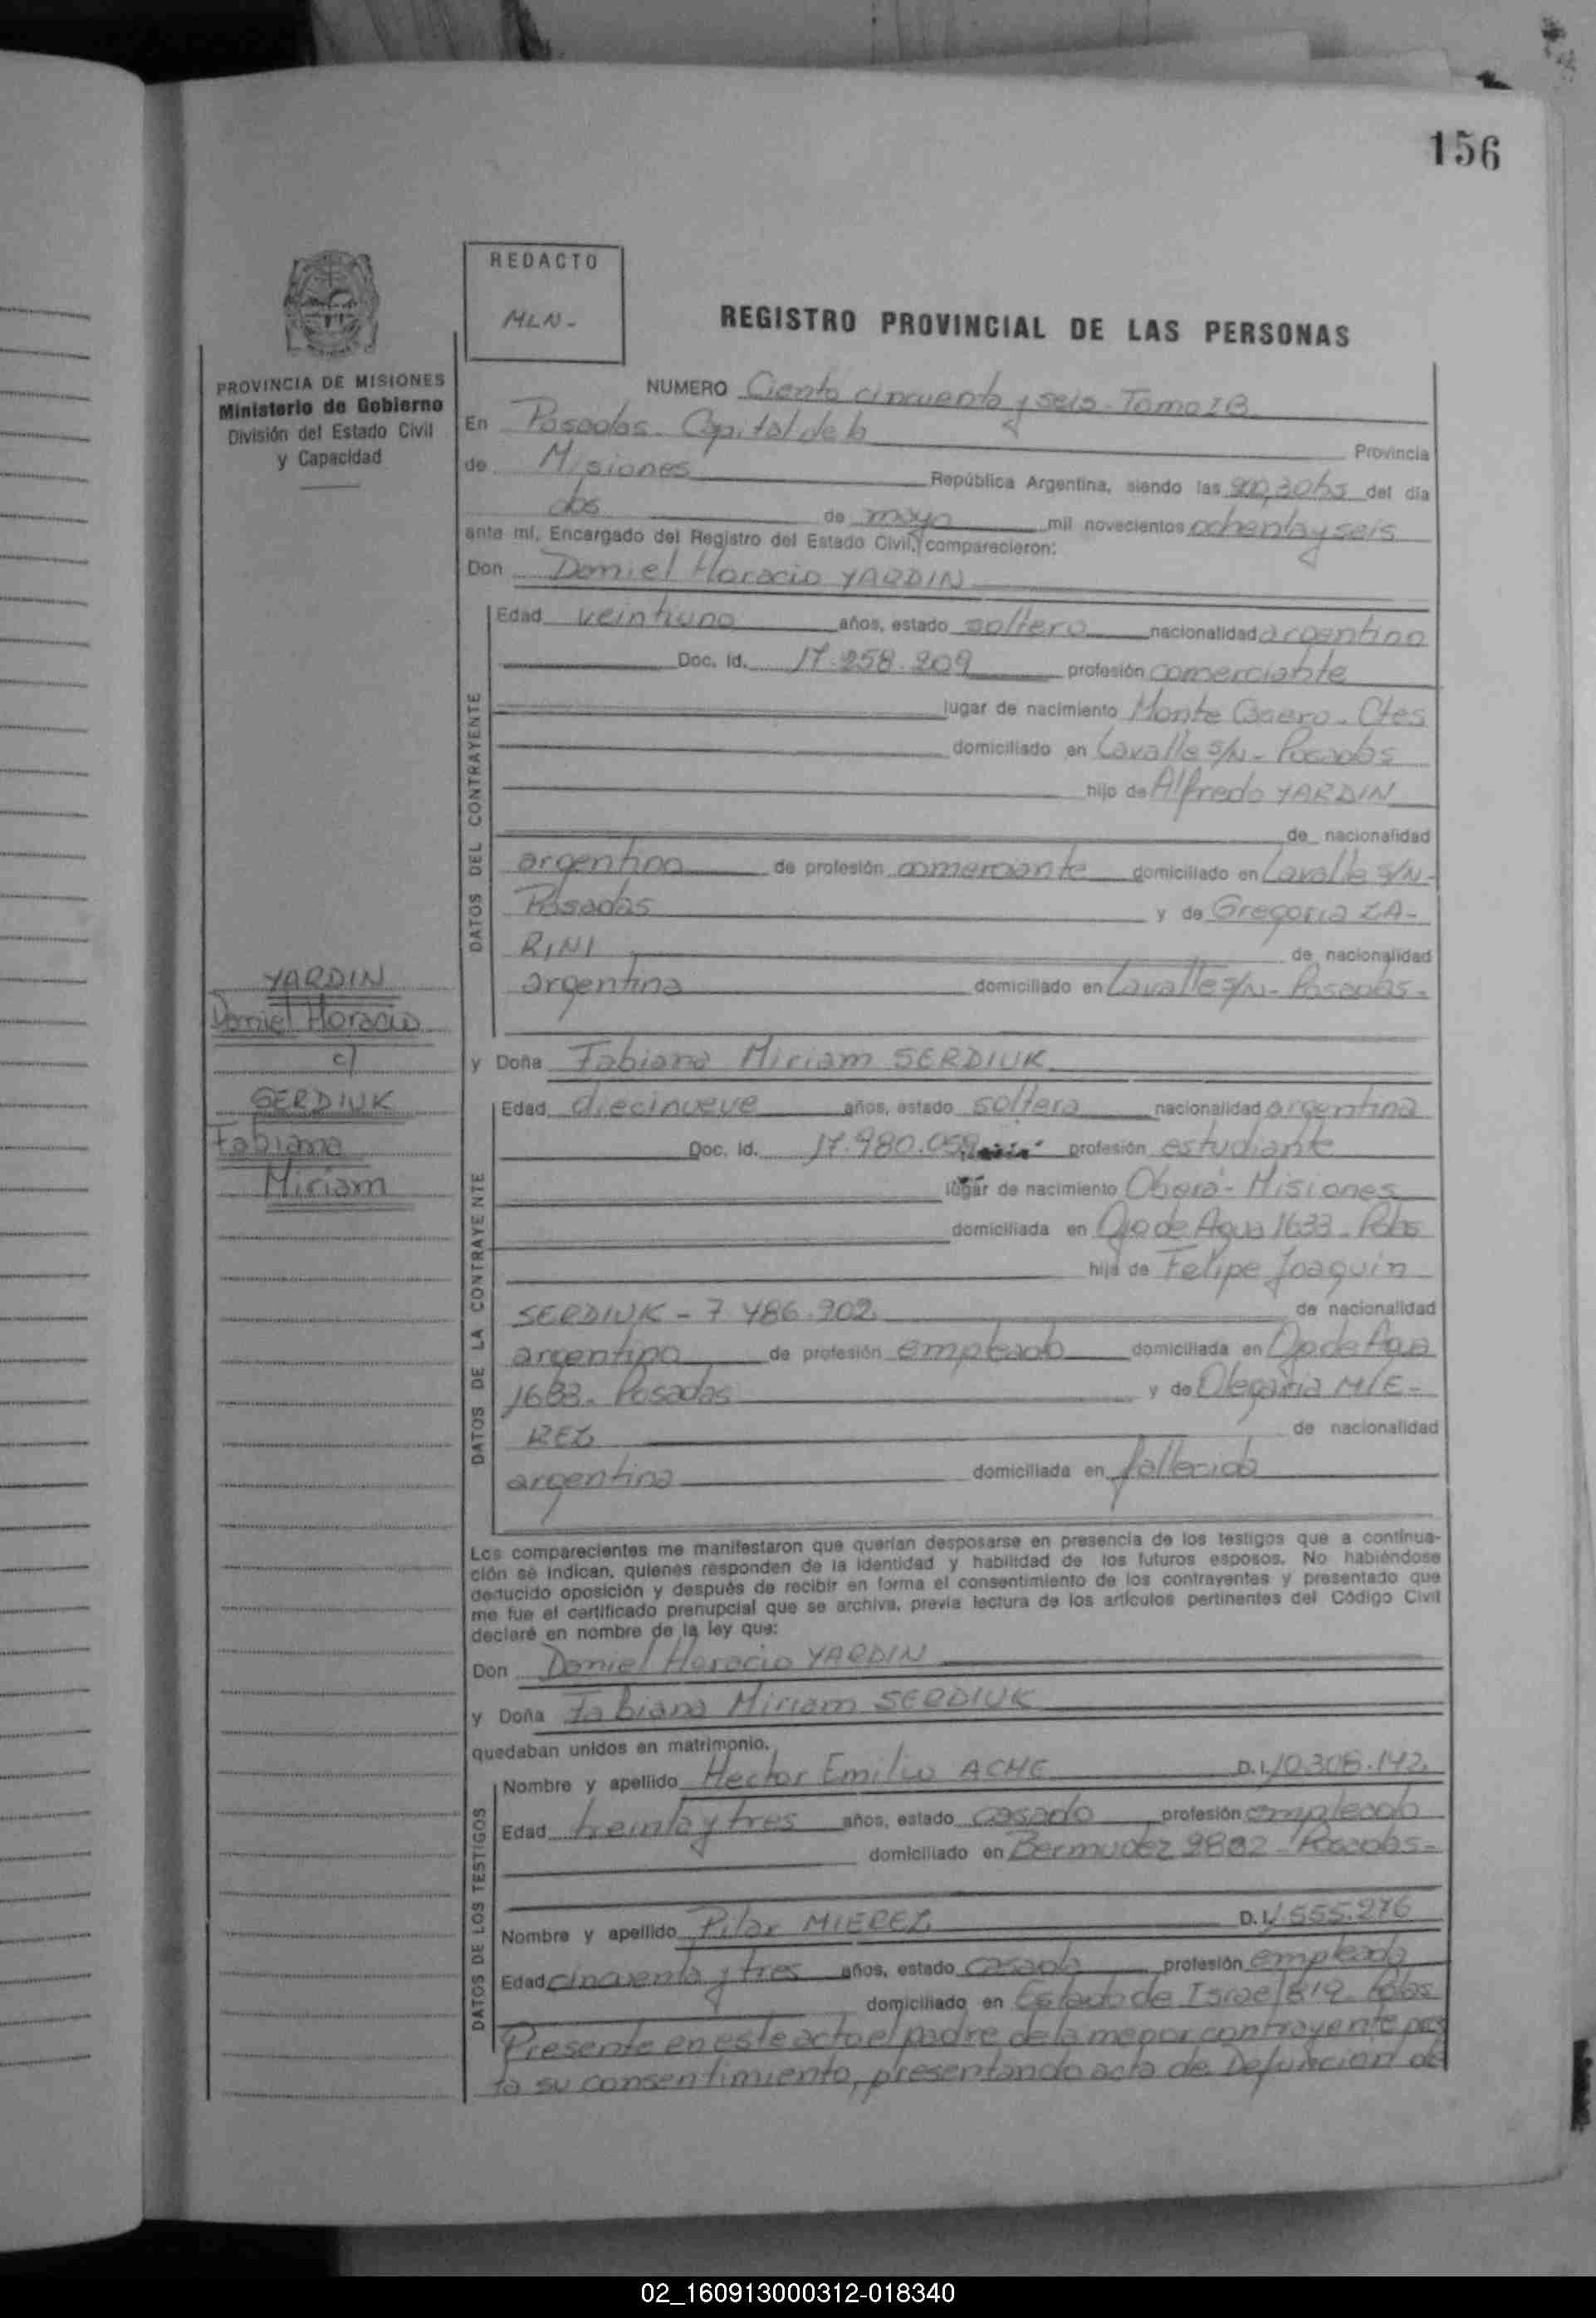 156
REDACTO
MLN-
REGISTRO PROVINCIAL DE LAS PERSONAS
PROVINCIA DE MISIONES
Ministerio de Gobierno
División del Estado Civil
y Capacidad
NUMERO Ciento cincuenta y seis - Tomo I B
En Posadas Capital de la Provincia
de Misiones República Argentina, siendo las del día
dos de mayo mil novecientos ochenta y seis
ante mí, Encargado del Registro del Estado Civil, comparecieron:
Don Daniel Horacio YARDIN
DATOS DEL CONTRAYENTE
Edad veintiuno años, estado soltero nacionalidad argentino
Doc. Id. 17.258.209 profesión comerciante
lugar de nacimiento Monte Caseros - Ctes
domiciliado en Lavalle s/N - Posadas
hijo de Alfredo YARDIN
de nacionalidad
argentino de profesión comerciante domiciliado en Lavalle s/N-
Posadas y de Gregoria ZA-
RINI de nacionalidad
argentina domiciliado en Lavalle s/N - Posadas -
YARDIN
Daniel Horacio
c/
SERDIUK
Fabiana
Miriam
y Doña Fabiana Miriam SERDIUK
DATOS DE LA CONTRAYENTE
Edad diecinueve años, estado soltera nacionalidad argentina
Doc. Id. 17.980.059 profesión estudiante
lugar de nacimiento Oberá - Misiones
domiciliada en Ojo de Agua 1633 - Pdas
hija de Felipe Joaquin
SERDIUK - 7.486.902 de nacionalidad
argentino de profesión empleado domiciliada en Ojo de Agua
1633 - Posadas y de Olegaria MIE-
REZ de nacionalidad
argentina domiciliada en fallecida
Los comparecientes me manifestaron que querían desposarse en presencia de los testigos que a continua-
ción se indican, quienes responden de la identidad y habilidad de los futuros esposos. No habiéndose
deducido oposición y después de recibir en forma el consentimiento de los contrayentes y presentado que
me fue el certificado prenupcial que se archiva, previa lectura de los artículos pertinentes del Código Civil
declaré en nombre de la ley que:
Don Daniel Horacio YARDIN
y Doña Fabiana Miriam SERDIUK
quedaban unidos en matrimonio.
DATOS DE LOS TESTIGOS
Nombre y apellido Hector Emilio ACHE D.I. 10.308.142
Edad treinta y tres años, estado casado profesión empleado
domiciliado en Bermudez 9802 - Posadas -
Nombre y apellido Pilar MIEREZ D.I. 1.555.276
Edad cincuenta y tres años, estado casada profesión empleada
domiciliado en Estado de Israel 819 - Pdas
Presente en este acto el padre de la menor contrayente pres
ta su consentimiento, presentando acta de Defuncion de
02_160913000312-018340